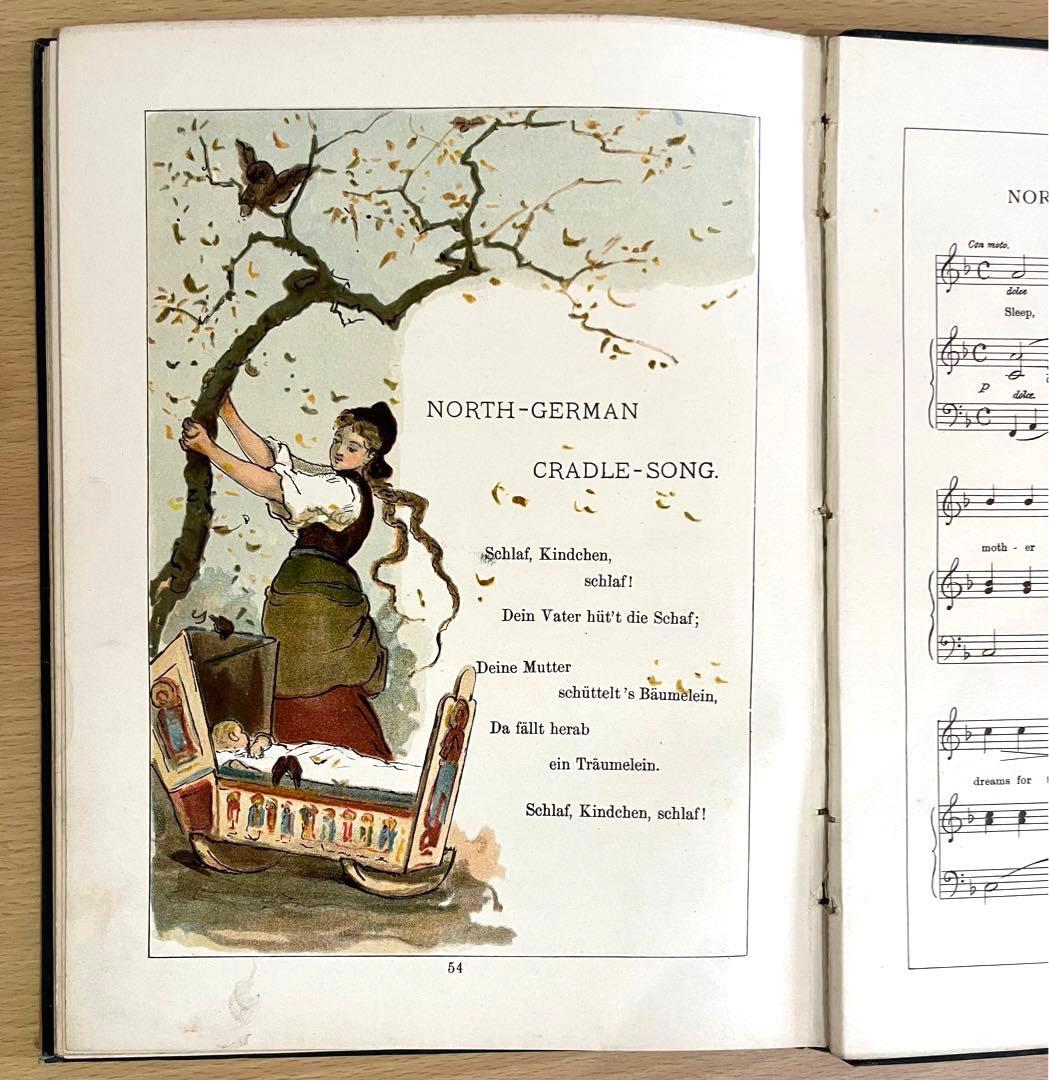 NORTH-GERMAN
CRADLE-SONG.
Schlaf, Kindchen,
schlaf!
Dein Vater hüt't die Schaf;
Deine Mutter
schüttelt's Bäumelein,
Da fällt herab
ein Träumelein.
Schlaf, Kindchen, schlaf!
54
NOR
Con moto.
dolce
Sleep,
P
dolce.
moth - er
dreams for